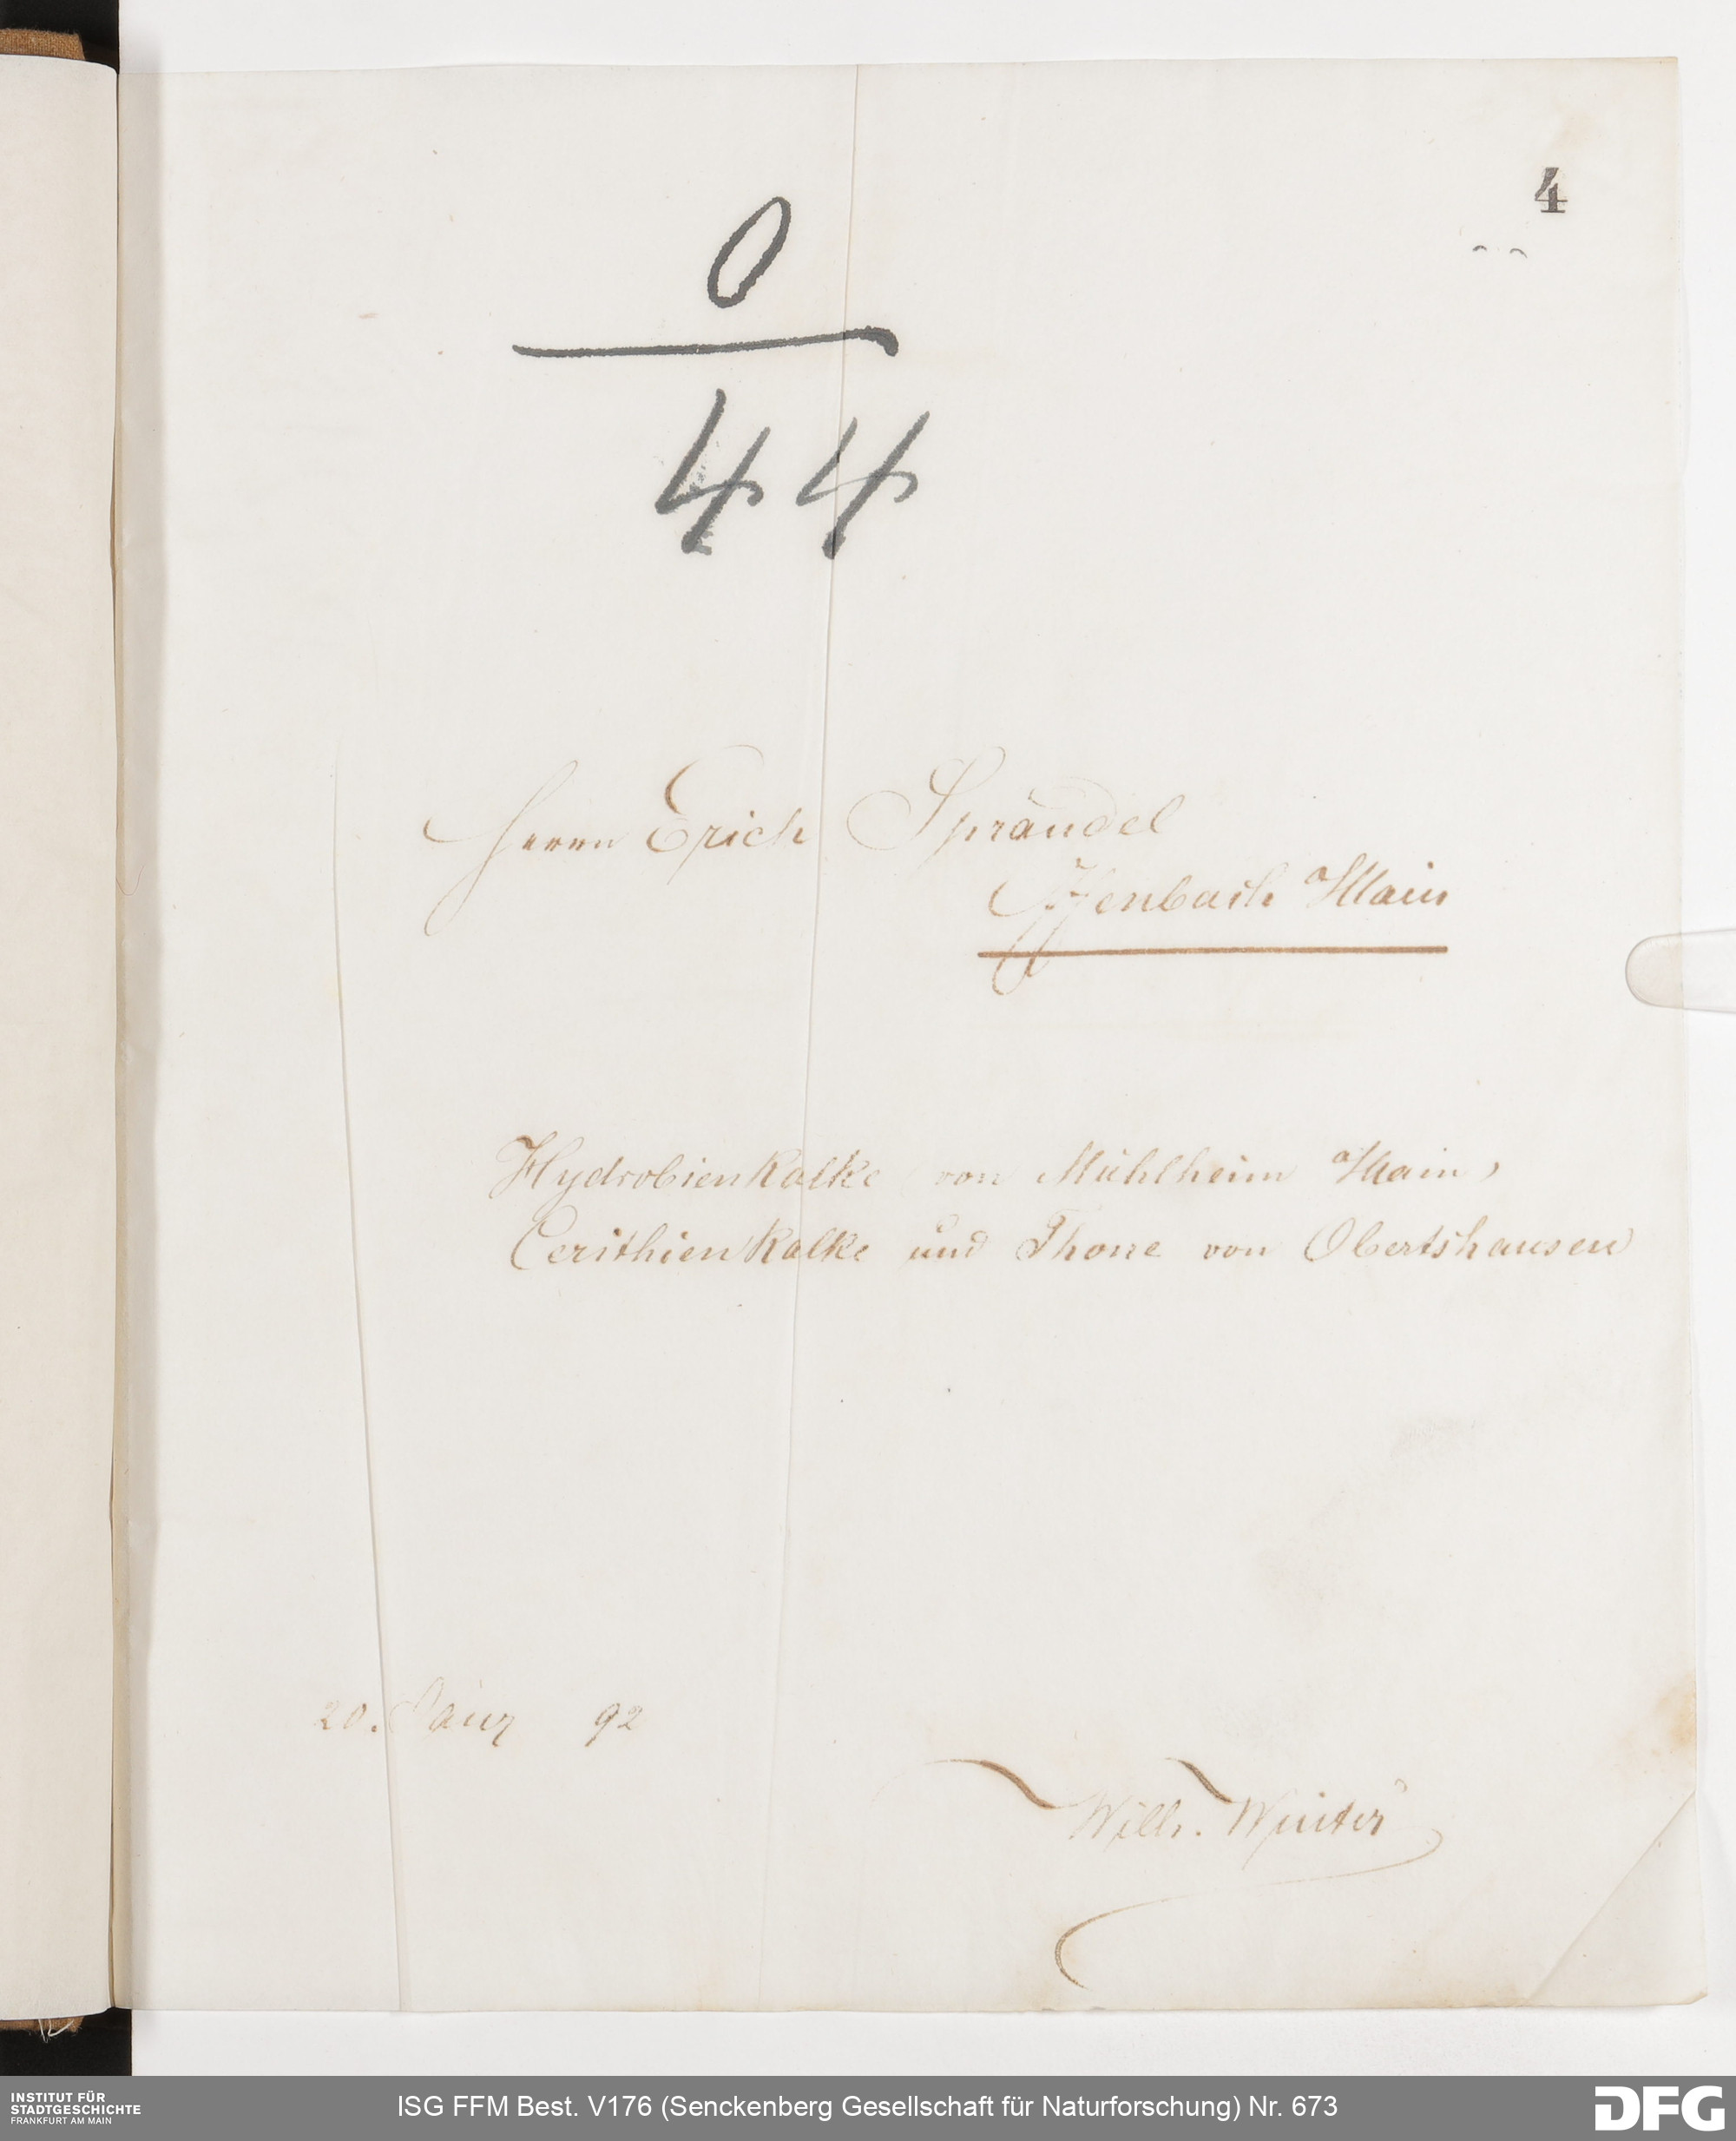 4
0
44
Herrn Erich Sprandel
Offenbach a/Main
Hydrobienkalke von Mühlheim a/Main,
Cerithienkalke und Thone von Obertshausen
20. 92
Wilh. Winter
INSTITUT FÜR
STADTGESCHICHTE
FRANKFURT AM MAIN
ISG FFM Best. V176 (Senckenberg Gesellschaft für Naturforschung) Nr. 673
DFG